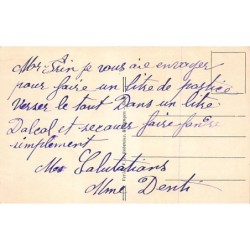 Mr Prin je vous aie envoyer
pour faire un litre de pastice
verser le tout Dans un litre
Dalcol et secoues faire fandre
simplement
Mes Salutations
Mme Denti